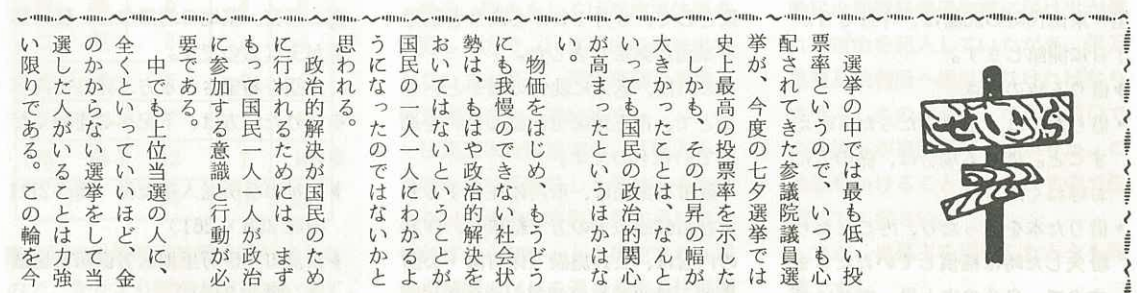 選挙の中では最も低い投
票率というので、いつも心
配されてきた参議院議員選
挙が、今度の七夕選挙では
史上最高の投票率を示した
しかも、その上昇の幅が
大きかったことは、なんと
いっても国民の政治的関心
が高まったというほかはな
い。
物価をはじめ、もうどう
にも我慢のできない社会状
勢は、もはや政治的解決を
おいてはないということが
国民の一人一人にわかるよ
うになったのではないかと
思われる。
政治的解決が国民のため
に行われるためには、まず
もって国民一人一人が政治
に参加する意識と行動が必
要である。
中でも上位当選の人に、
全くといっていいほど、金
のかからない選挙をして当
選した人がいることは力強
い限りである。この輪を今